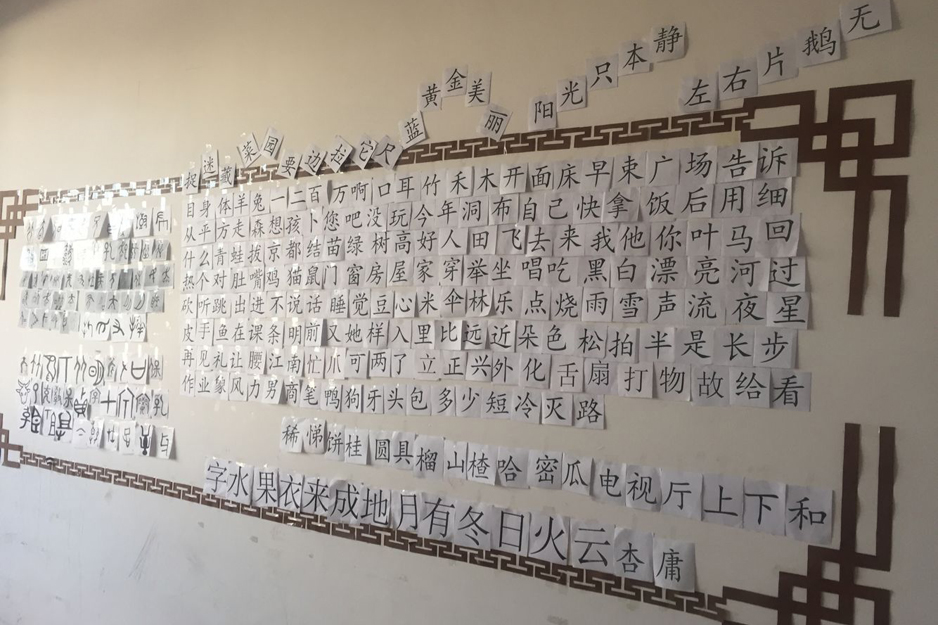 捉迷藏菜园要边拉它尺蓝黄金美丽阳光只本静左右片鹅无
自身体羊兔一二百万啊口耳竹禾木开面床早束广场告诉
从平方走森想孩卜您吧没玩今年洞布自己快拿饭后用细
什么青蛙拔京都结苗绿树高好人田飞去来我他你叶马回
热个对肚嘴鸡猫鼠门窗房屋家穿举坐唱吃黑白漂亮河过
砍听跳出进不说话睡觉豆心米伞林乐点烧雨雪声流夜星
皮手鱼在课条明前又她样入里比远近朵色松拍半是长步
再见礼让腰江南忙爪可两了立正兴外化舌扇打物故给看
作业象风力男商笔鸭狗牙头包多少短冷灭路
稀悌饼桂圆具榴山楂哈密瓜电视厅上下和
字水果衣来成地月有冬日火云杏庸